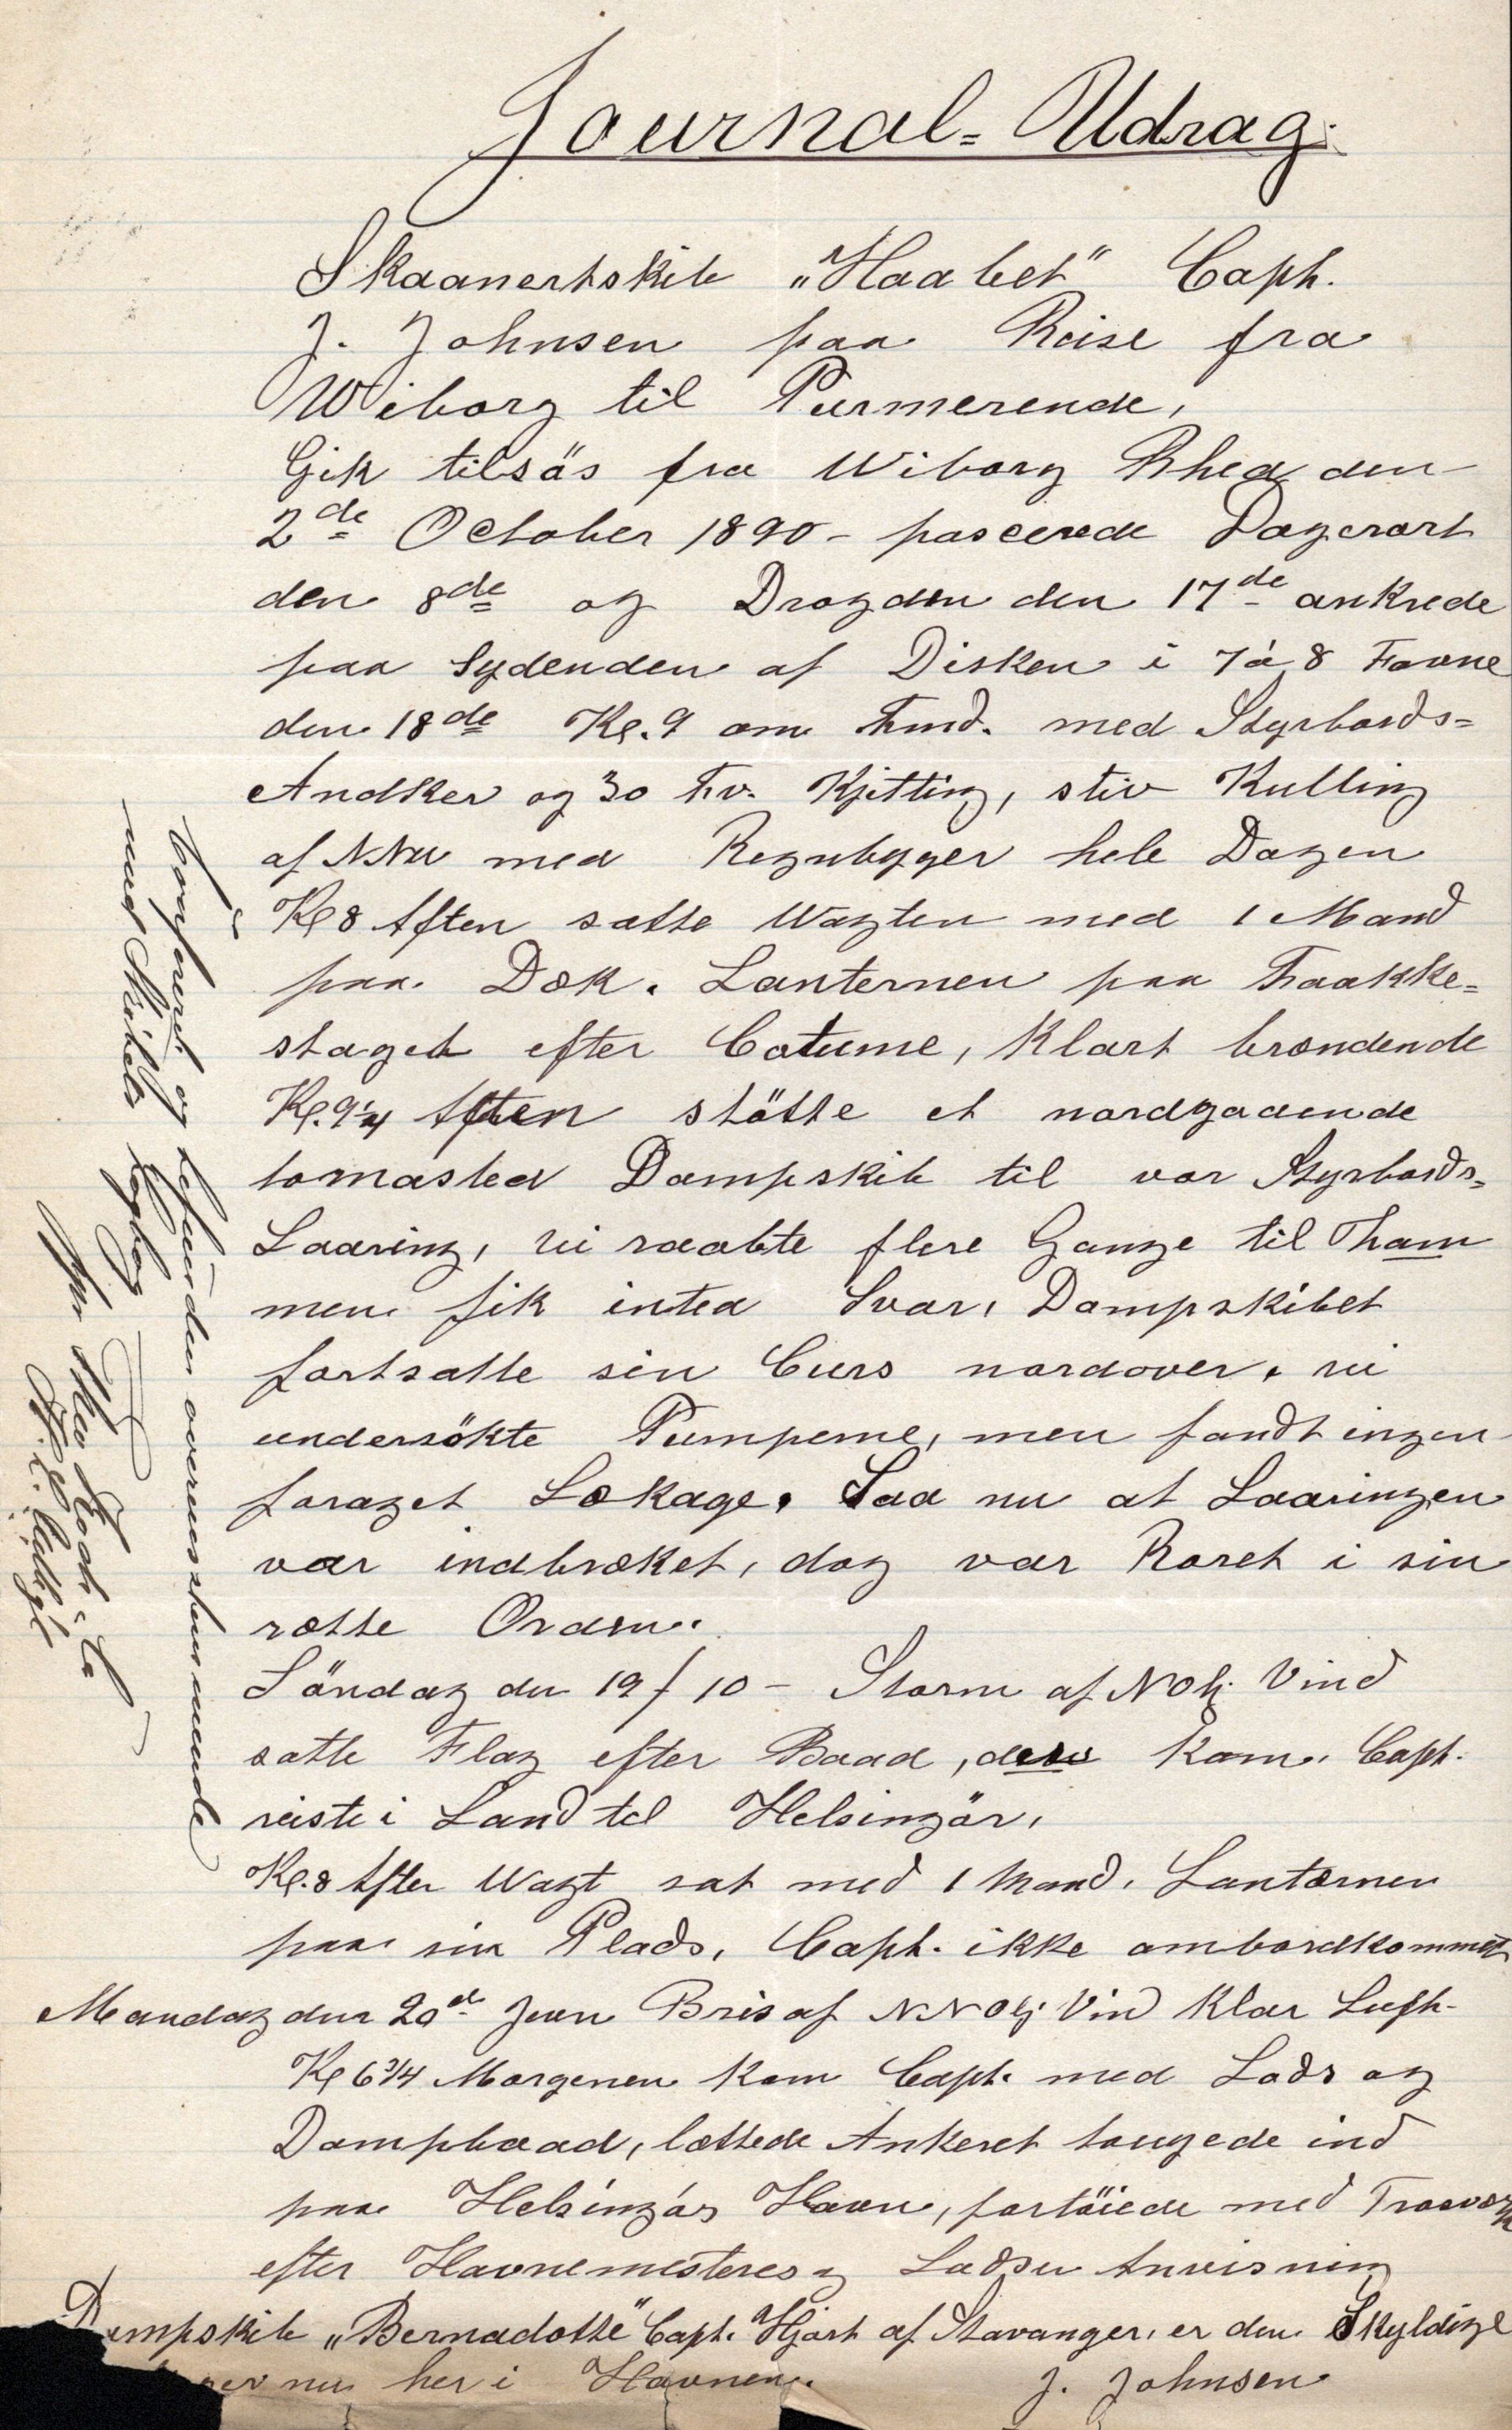 Journal=Udrag.
Skaanertskib „Haabet" Capt.
J. Johnsen paa Reise fra
Wiborg til Purmerende,
Gik tilsös fra Wiborg Rhed den
2de October 1890 - passerede Dagerort
den 8de og Drogden den 17de ankrede
paa Sydenden af Disken i 7 á 8 Favne
den 18de Kl. 9 om Fmd. med Styrbords=
Andker og 30 Fv. Kjitting, stiv Kulling
af NNW med Regnbyger hele Dagen
Kl 8 Aften satte Wagten med 1 Mand
paa Dæk. Lanternen paa Fraakke=
staget efter Cotume, Klart brændende
Kl. 9¼ Aften stötte et nordgaaende
tomasted Dampskib til vor Styrbords=
Laaring, vi raabte flere Gange til Tham
men fik inted Svar, Dampskibet
fortsatte sin Curs nordover, vi
undersökte Pumperne, men fandt ingen
foraget Lækage. Saa nu at Laaringen
var indbræket, dog var Roret i sin
rætte Orden.
Söndag den 19/10 - Storm af NOlig Vind
satte Flag efter Baad, den kom. Capt.
reiste i Land til Helsingör,
Kl. 8 After Wagt sat med 1 Mand, Lantærnen
paa sin Plads, Capt. ikke ombordkommet
Mandag den 20de Jevn Bris af NNOlig Vind Klar Luft
Kl 6¾ Morgenen kom Capt. med Lods og
Dampbaad, lættede Ankeret tougede ind
paa Helsingörs Havn, fortöiede med Trosser
efter Havnemesteres og Lodsen Anvisning
Dampskib „Bernadotte" Capt. Hjort af Stavanger, er den Skyldige
nu her i Havnen.
J. Johnsen
Confereret og befunden overensstemmende
med Skibets Logbog